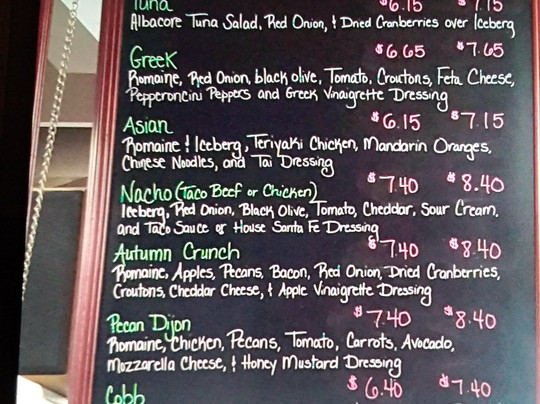 Tuna $6.15 $7.15
Albacore Tuna Salad, Red Onion, & Dried Cranberries over Iceberg
Greek $6.65 $7.65
Romaine, Red Onion, black olive, Tomato, Croutons, Feta Cheese,
Pepperoncini Peppers and Greek Vinaigrette Dressing
Asian $6.15 $7.15
Romaine & Iceberg, Teriyaki Chicken, Mandarin Oranges,
Chinese Noodles, and Tai Dressing
Nacho (Taco Beef or Chicken) $7.40 $8.40
Iceberg, Red Onion, Black Olive, Tomato, Cheddar, Sour Cream,
and Taco Sauce or House Santa Fe Dressing
Autumn Crunch $7.40 $8.40
Romaine, Apples, Pecans, Bacon, Red Onion, Dried Cranberries,
Croutons, Cheddar Cheese, & Apple Vinaigrette Dressing
Pecan Dijon $7.40 $8.40
Romaine, Chicken, Pecans, Tomato, Carrots, Avocado,
Mozzarella Cheese, & Honey Mustard Dressing
Cobb $6.40 $7.40